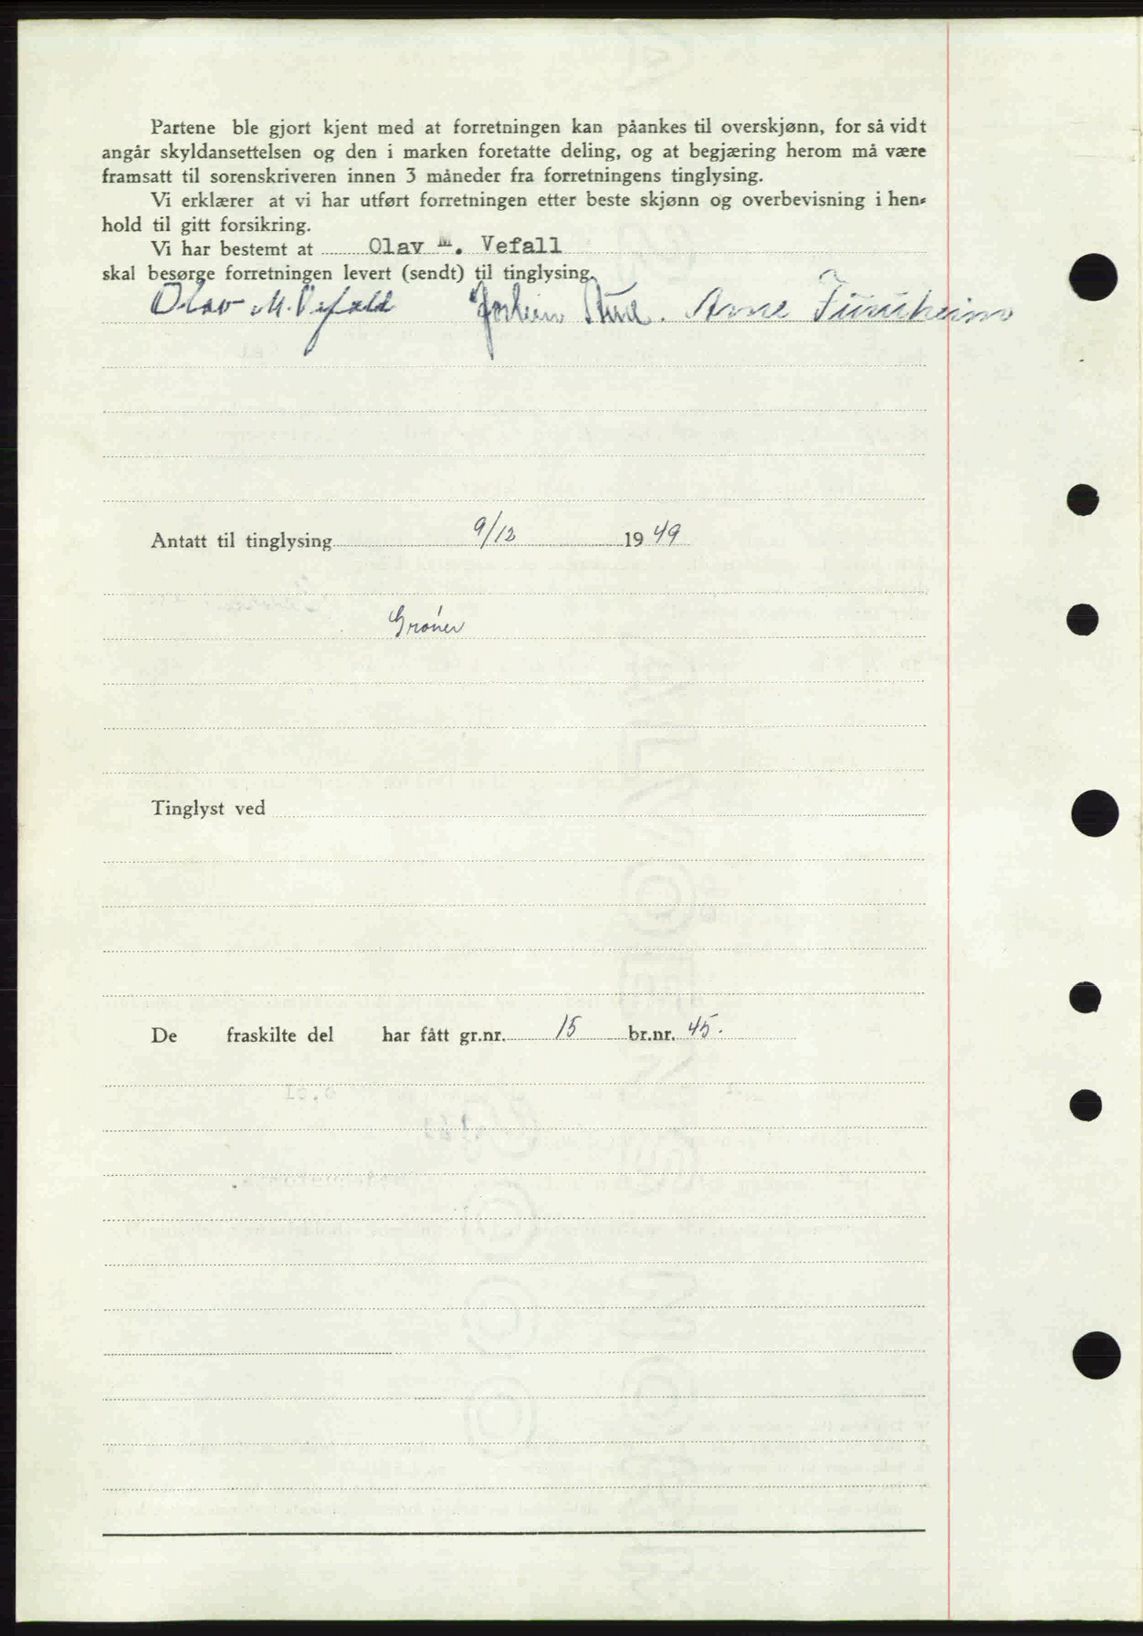 Partene ble gjort kjent med at forretningen kan påankes til overskjønn, for så vidt
angår skyldansettelsen og den i marken foretatte deling, og at begjæring herom må være
framsatt til sorenskriveren innen 3 måneder fra forretningens tinglysing.
Vi erklærer at vi har utført forretningen etter beste skjønn og overbevisning i hen-
hold til gitt forsikring.
Vi har bestemt at Olav M. Vefall
skal besørge forretningen levert (sendt) til tinglysing.
Olav M. Vefald Arne Furuheim
Antatt til tinglysing 9/12 1949
Grøner
Tinglyst ved
De fraskilte del har fått gr.nr. 15 br.nr. 45.